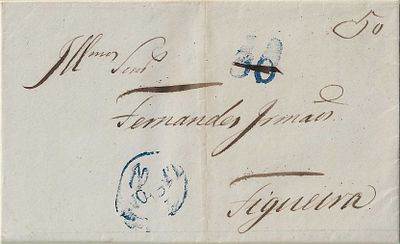 50
Illmos Senrs
30
Fernandes Irmãos
Figueira